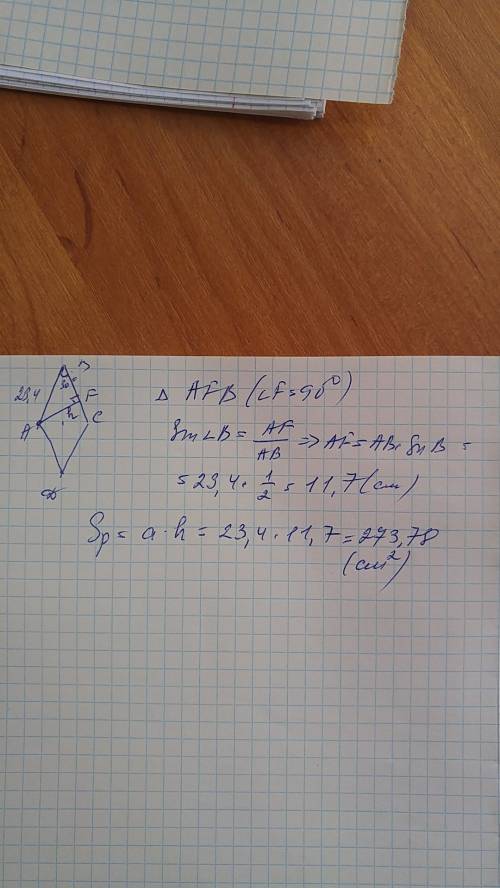 B
30°
23,4
F
h
A
C
D
△ AFB (∠F=90°)
Sin∠B = AF/AB ⇒ AF = AB · Sin B =
= 23,4 · 1/2 = 11,7 (см)
Sр = a · h = 23,4 · 11,7 = 273,78
(см²)